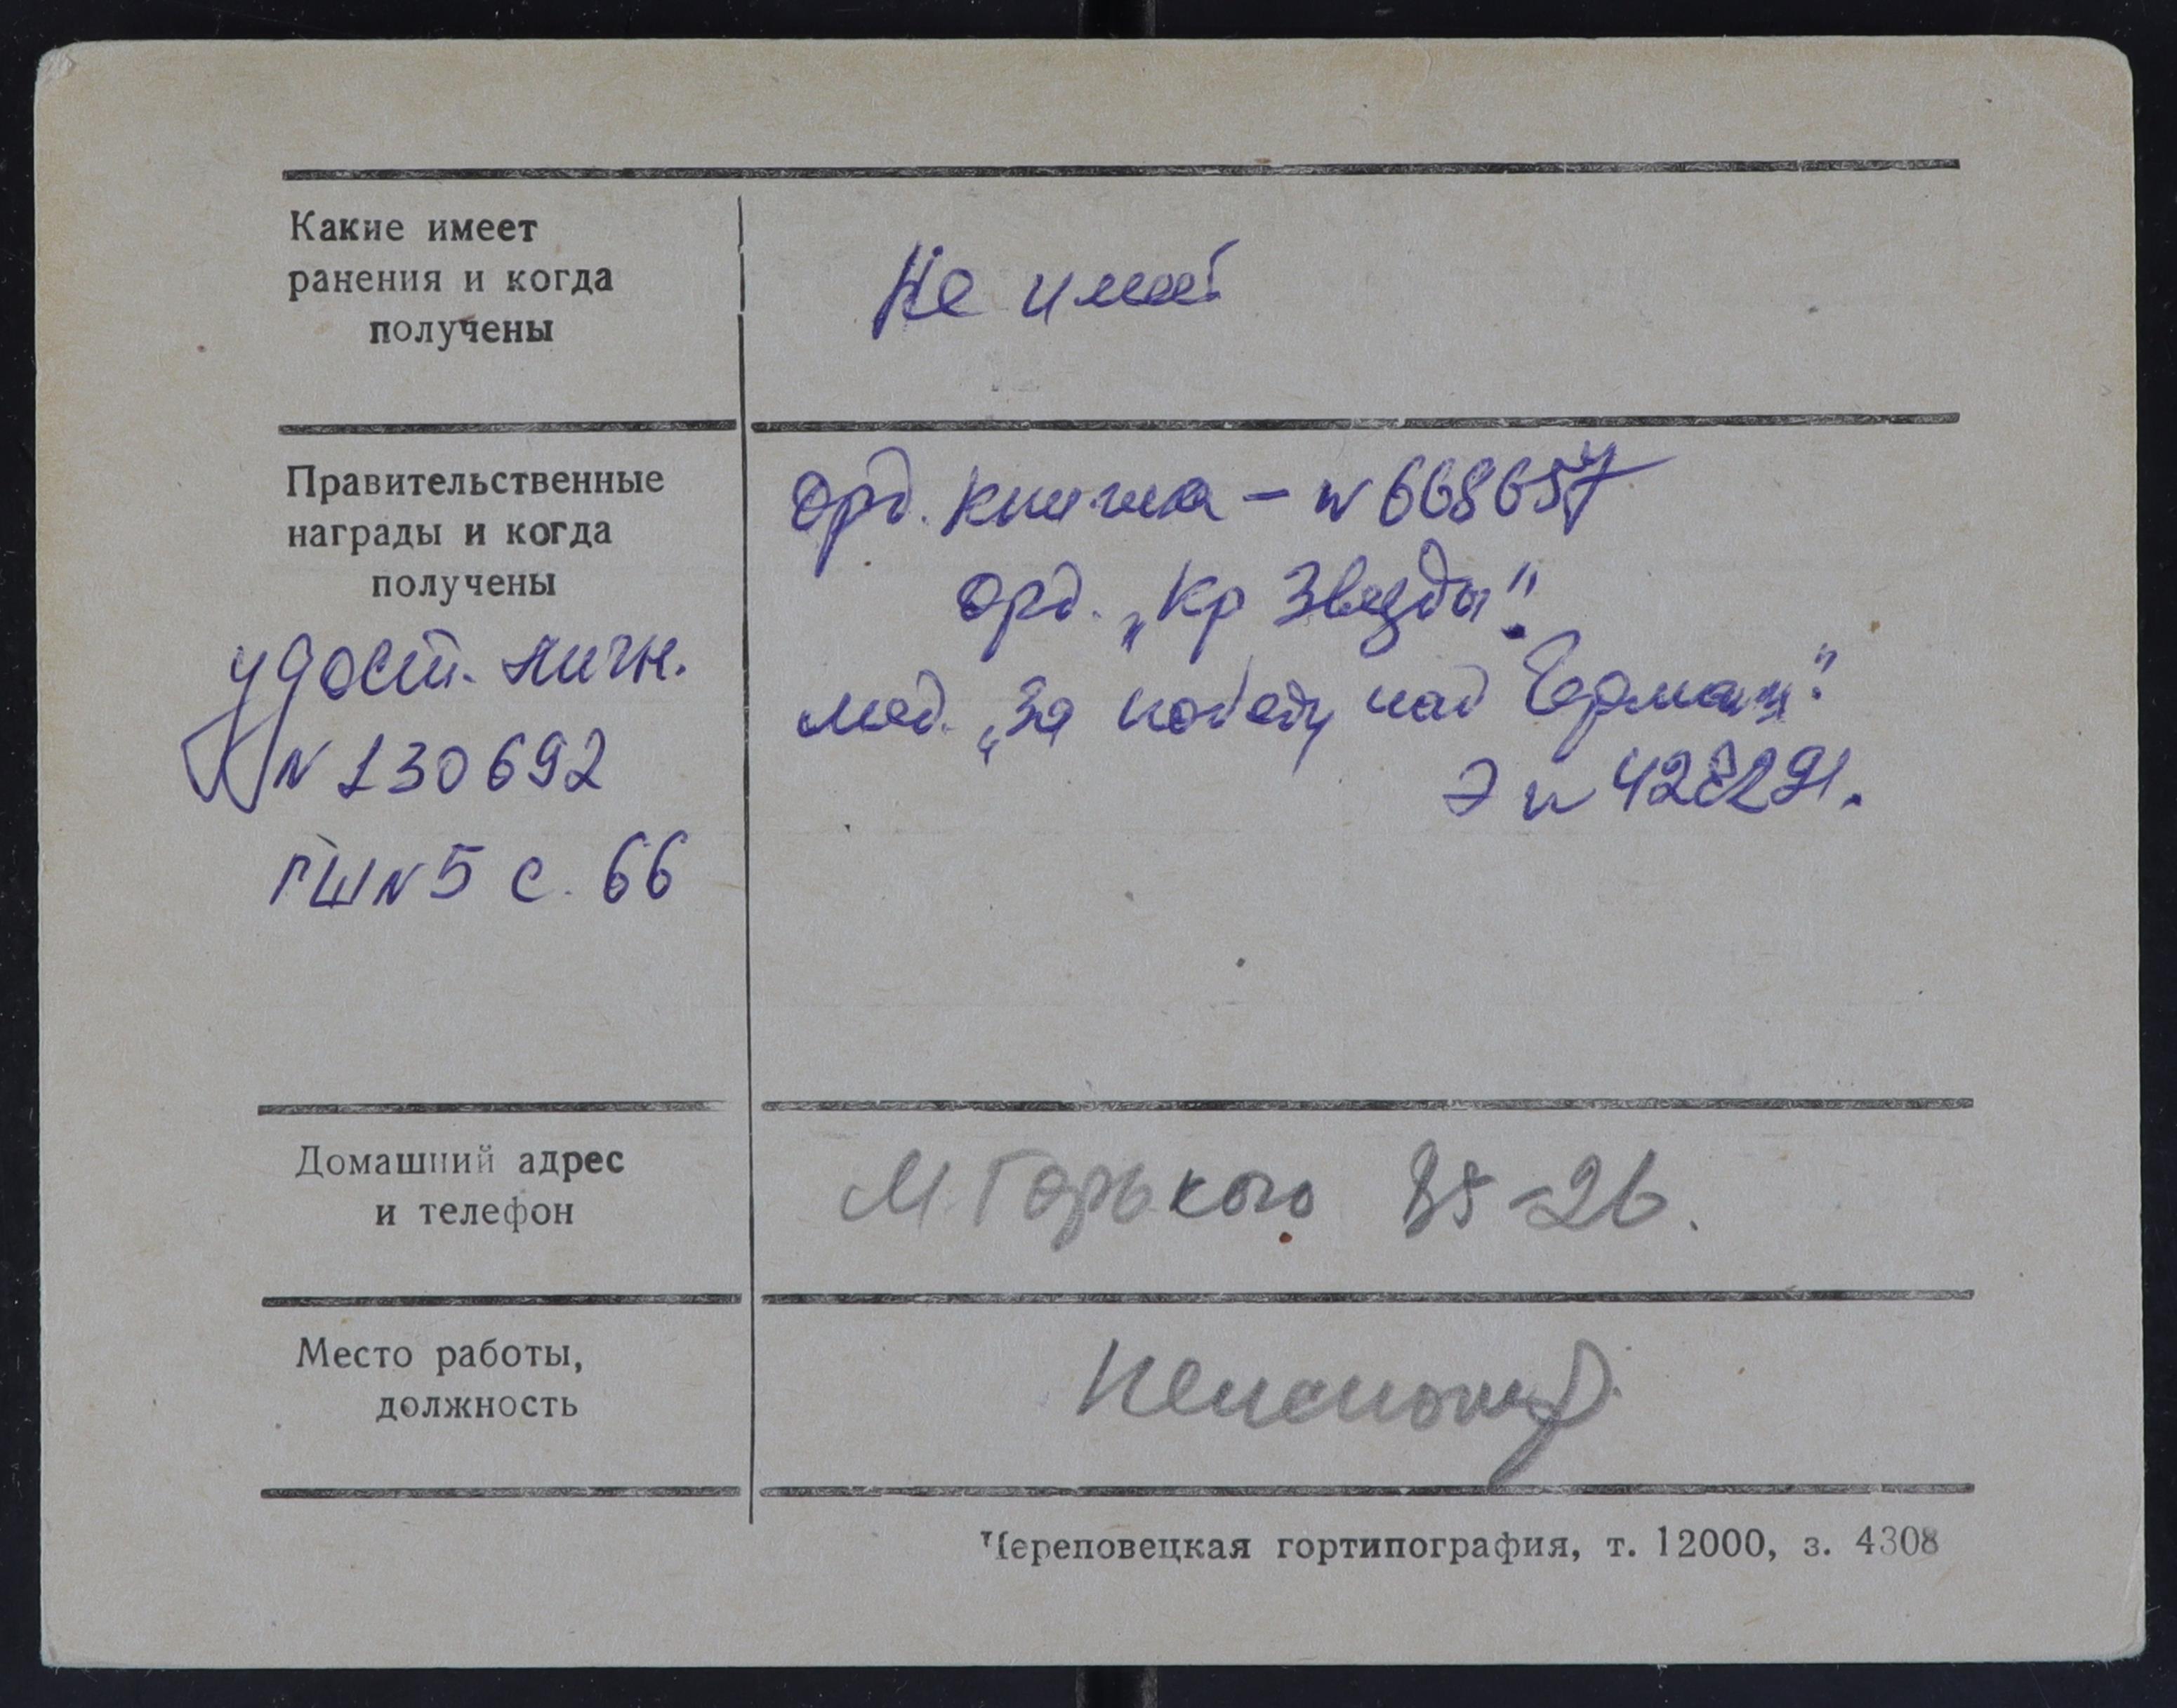 Какие имеет
ранения и когда
получены
Не имеет
Правительственные
награды и когда
получены
удост. личн.
N 130692
ГШ N 5 с. 66
орд. книжка – N 668657
орд. „Кр Звезды".
мед. „За победу над Герман".
Э N 428291.
Домашний адрес
и телефон
М. Горького 85-26.
Место работы,
должность
Пенсионер
Череповецкая гортипография, т. 12000, з. 4308